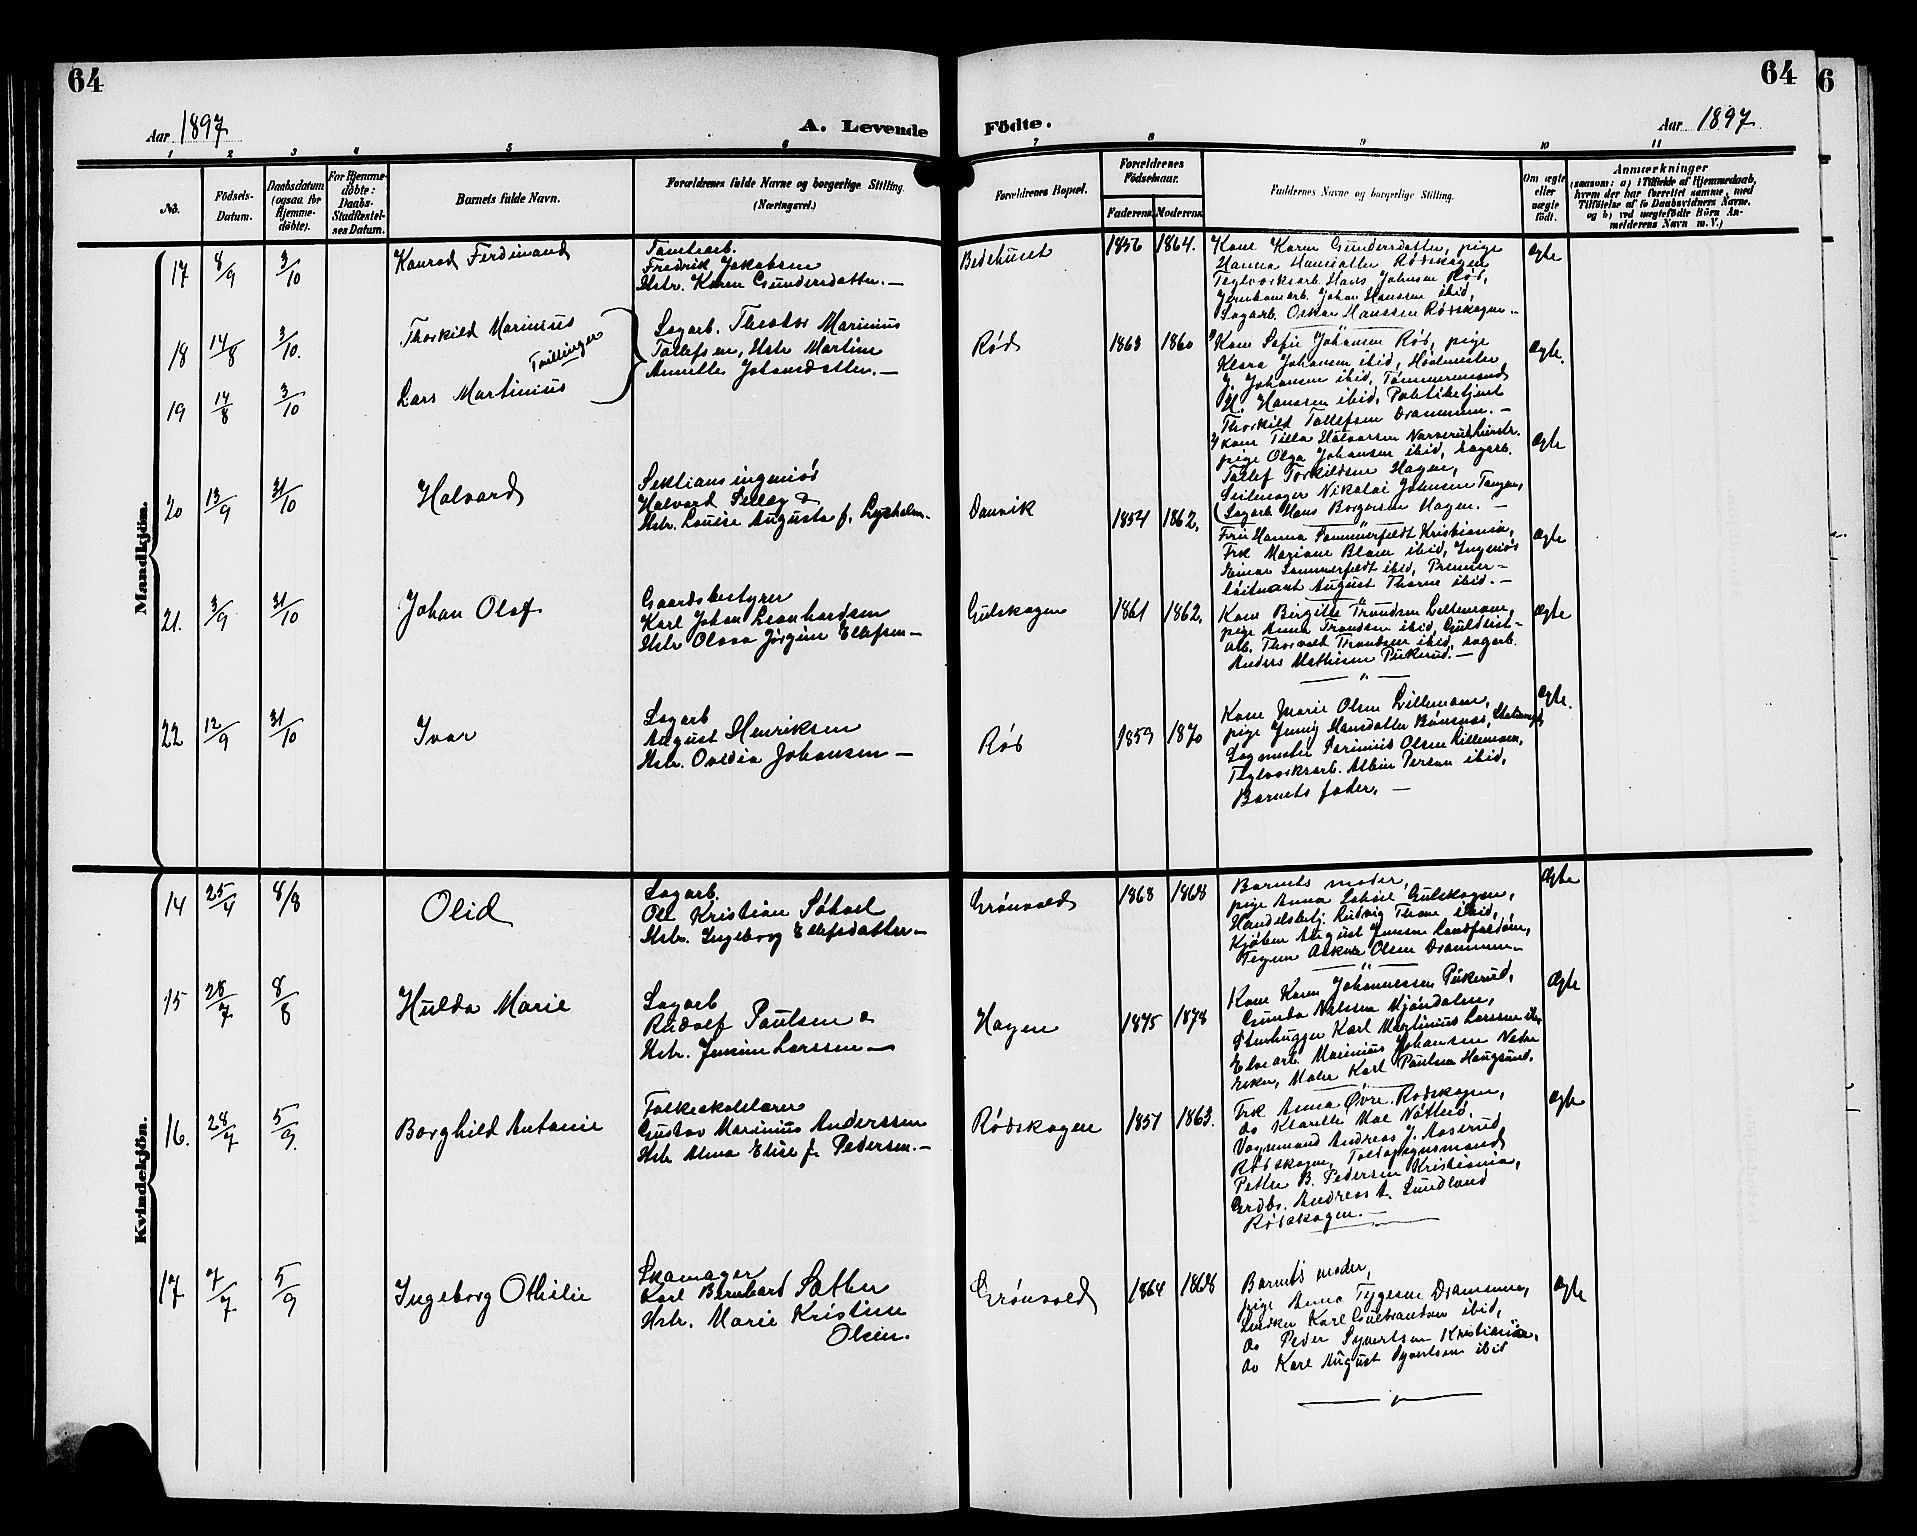 64
64
6
Aar 1897
A. Levende
Födte.
Aar 1897
1 2 3 4 5 6 7 8 9 10 11
No.
Födsels-
Datum.
Daabsdatum
(ogsaa for
Hjemme-
döbte).
For Hjemme-
döbte:
Daabs-
Stadfæstel-
ses Datum.
Barnets fulde Navn.
Forældrenes fulde Navne og borgerlige Stilling.
(Næringsvei.)
Forældrenes Bopæl.
Forældrenes
Födselsaar.
Faderens.
Moderens.
Faddernes Navne og borgerlige Stilling.
Om ægte
eller
uægte
födt.
Anmærkninger
(saasom: a) i Tilfælde af Hjemmedaab,
hvem der har forrettet samme, med
Tilföielse af to Daabsvidners Navne,
og b) ved uægtefödte Börn An-
melderens Navn m. V.)
Mandkjön.
17 8/9 3/10 Konrad Ferdinand
Tomtearb.
Fredrik Jakobsen
Hstr. Karen Gundersdatter. —
Bedehuset 1856 1864.
Kone Karen Gundersdatter, pige
Hanna Hansdatter Rødskogen
Teglverksarb. Hans Johnsen Rød,
Jernbanearb. Johan Hanssen ibid,
Sagarb. Oskar Hanssen Rødskogen. —
Ægte
18 14/8 3/10. Thorkild Marinius
Tvillinger
19 14/8 3/10 Lars Martinius
Sagarb. Theodor Marinius
Tollefsen, Hstr Martine
Annette Johansdatter. —
Rød 1863 1860
1) Kone Sofie Johansen Rød, pige
Klara Johansen ibid, Høvlmester
J. Johansen ibid, Tømmermand
H. Hanssen ibid, Politibetjent
Thorkild Tollefsen Drammen. —
Ægte.
2) Kone Tilla Halvorsen
pige Olga Johansen ibid, Sagarb.
Tollef Torkildsen Hagen,
Seilmager Nikolai Johnsen Tangen,
Sagarb Hans Borgersen Hagen. —
Ægte
20 13/9 31/10 Halvard
Sektionsingeniør
Halvard &
Hstr. Louise Augusta f. Lysholm. —
Danvik 1854 1862.
Fru Hanna Sommerfeldt Kristiania,
Frk Mariane Blom ibid, Ingeniør
Einar Sommerfeldt ibid, Premier-
løitnant August Thorne ibid. —
Ægte
21. 3/9 31/10 Johan Olaf
Gaardsbestyrer
Karl Johan Leonhardsen
Hstr Olava Jørgine Ellefsen —
Gulskogen 1861 1862.
Kone Birgitte Trondsen Lillemoen,
pige Anna Trondsen ibid,
Arb. Thorvald Trondsen ibid, sagarb.
Anders Mathisen Pukerud. —
Ægte
22 12/9 31/10 Ivar
Sagarb
August Henriksen
Hstr. Ovidia Johansen —
Rød 1859 1870
Kone Marie Olsen Lillemoen,
pige Jenny Hansdatter Bønsnes,
Sagmester Severinius Olsen Lillemoen,
Teglverksarb. Albin Person ibid,
Barnets fader. —
Ægte.
Kvindekjön.
14 25/4 8/8 Olid
Sagarb.
Ole Kristian Søhoel
Hstr. Ingeborg Ellefsdatter —
Grønvold 1863 1868
Barnets moder,
pige Anna Søhoel Gulskogen,
Handelsbetj. Ludvig Thone ibid,
Kjøbm August Jensen Landfaldøen,
Olsen Drammen —
Ægte
15 28/7 8/8 Hulda Marie
Sagarb
Rudolf Paulsen &
Hstr. Jensine Larssen —
Hagen 1875 1878
Kone Karen Johannessen Pukerud,
Gunda Nilssen Mjøndalen,
Stenhugger Karl Martinius Larssen ibid,
Elvearb. Marinius Johansen Nedre
Eker, Maler Karl Paulsen Haugsund.
Ægte
16. 28/7 5/9. Borghild Antonie
Folkeskolelærer
Gustav Marinius Anderssen
Hstr Alma Elise f. Pedersen. —
Rødskogen 1857 1863.
Frk Anna Øvre Rødskogen,
do Klarette Moe Nøtterø,
Vognmand Andreas J. Aaserud
Rødskogen, Toldopsynsmand
Petter B. Pedersen Kristiania,
Grdbr. Andreas A. Sundland
Rødskogen. —
Ægte
17 7/7 5/9 Ingeborg Othilie
Skomager
Karl Bernhard Sæther
Hstr. Marie Kristine
Olsen.
Grønvold 1864 1868
Barnets moder,
pige Anna Tygesen Drammen,
Snedker Karl Gulbrandsen ibid,
do Peder Syvertsen Kristiania,
do Karl August Syvertsen ibid
Ægte